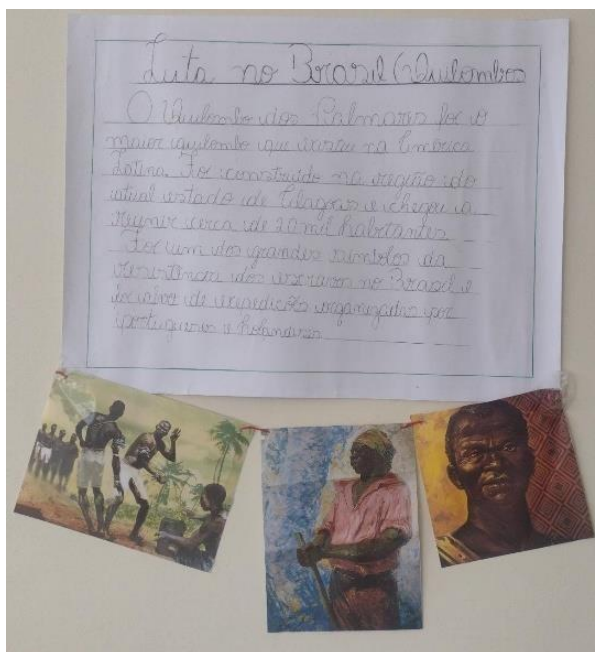 Luta no Brasil (Quilombos
O Quilombo dos Palmares foi o
maior quilombo que existiu na América
Latina. Foi construído na região do
atual estado de Alagoas e chegou a
reunir cerca de 20 mil habitantes
Foi um dos grandes símbolos da
resistência dos escravos no Brasil e
foi alvo de expedições organizadas por
portugueses e holandeses